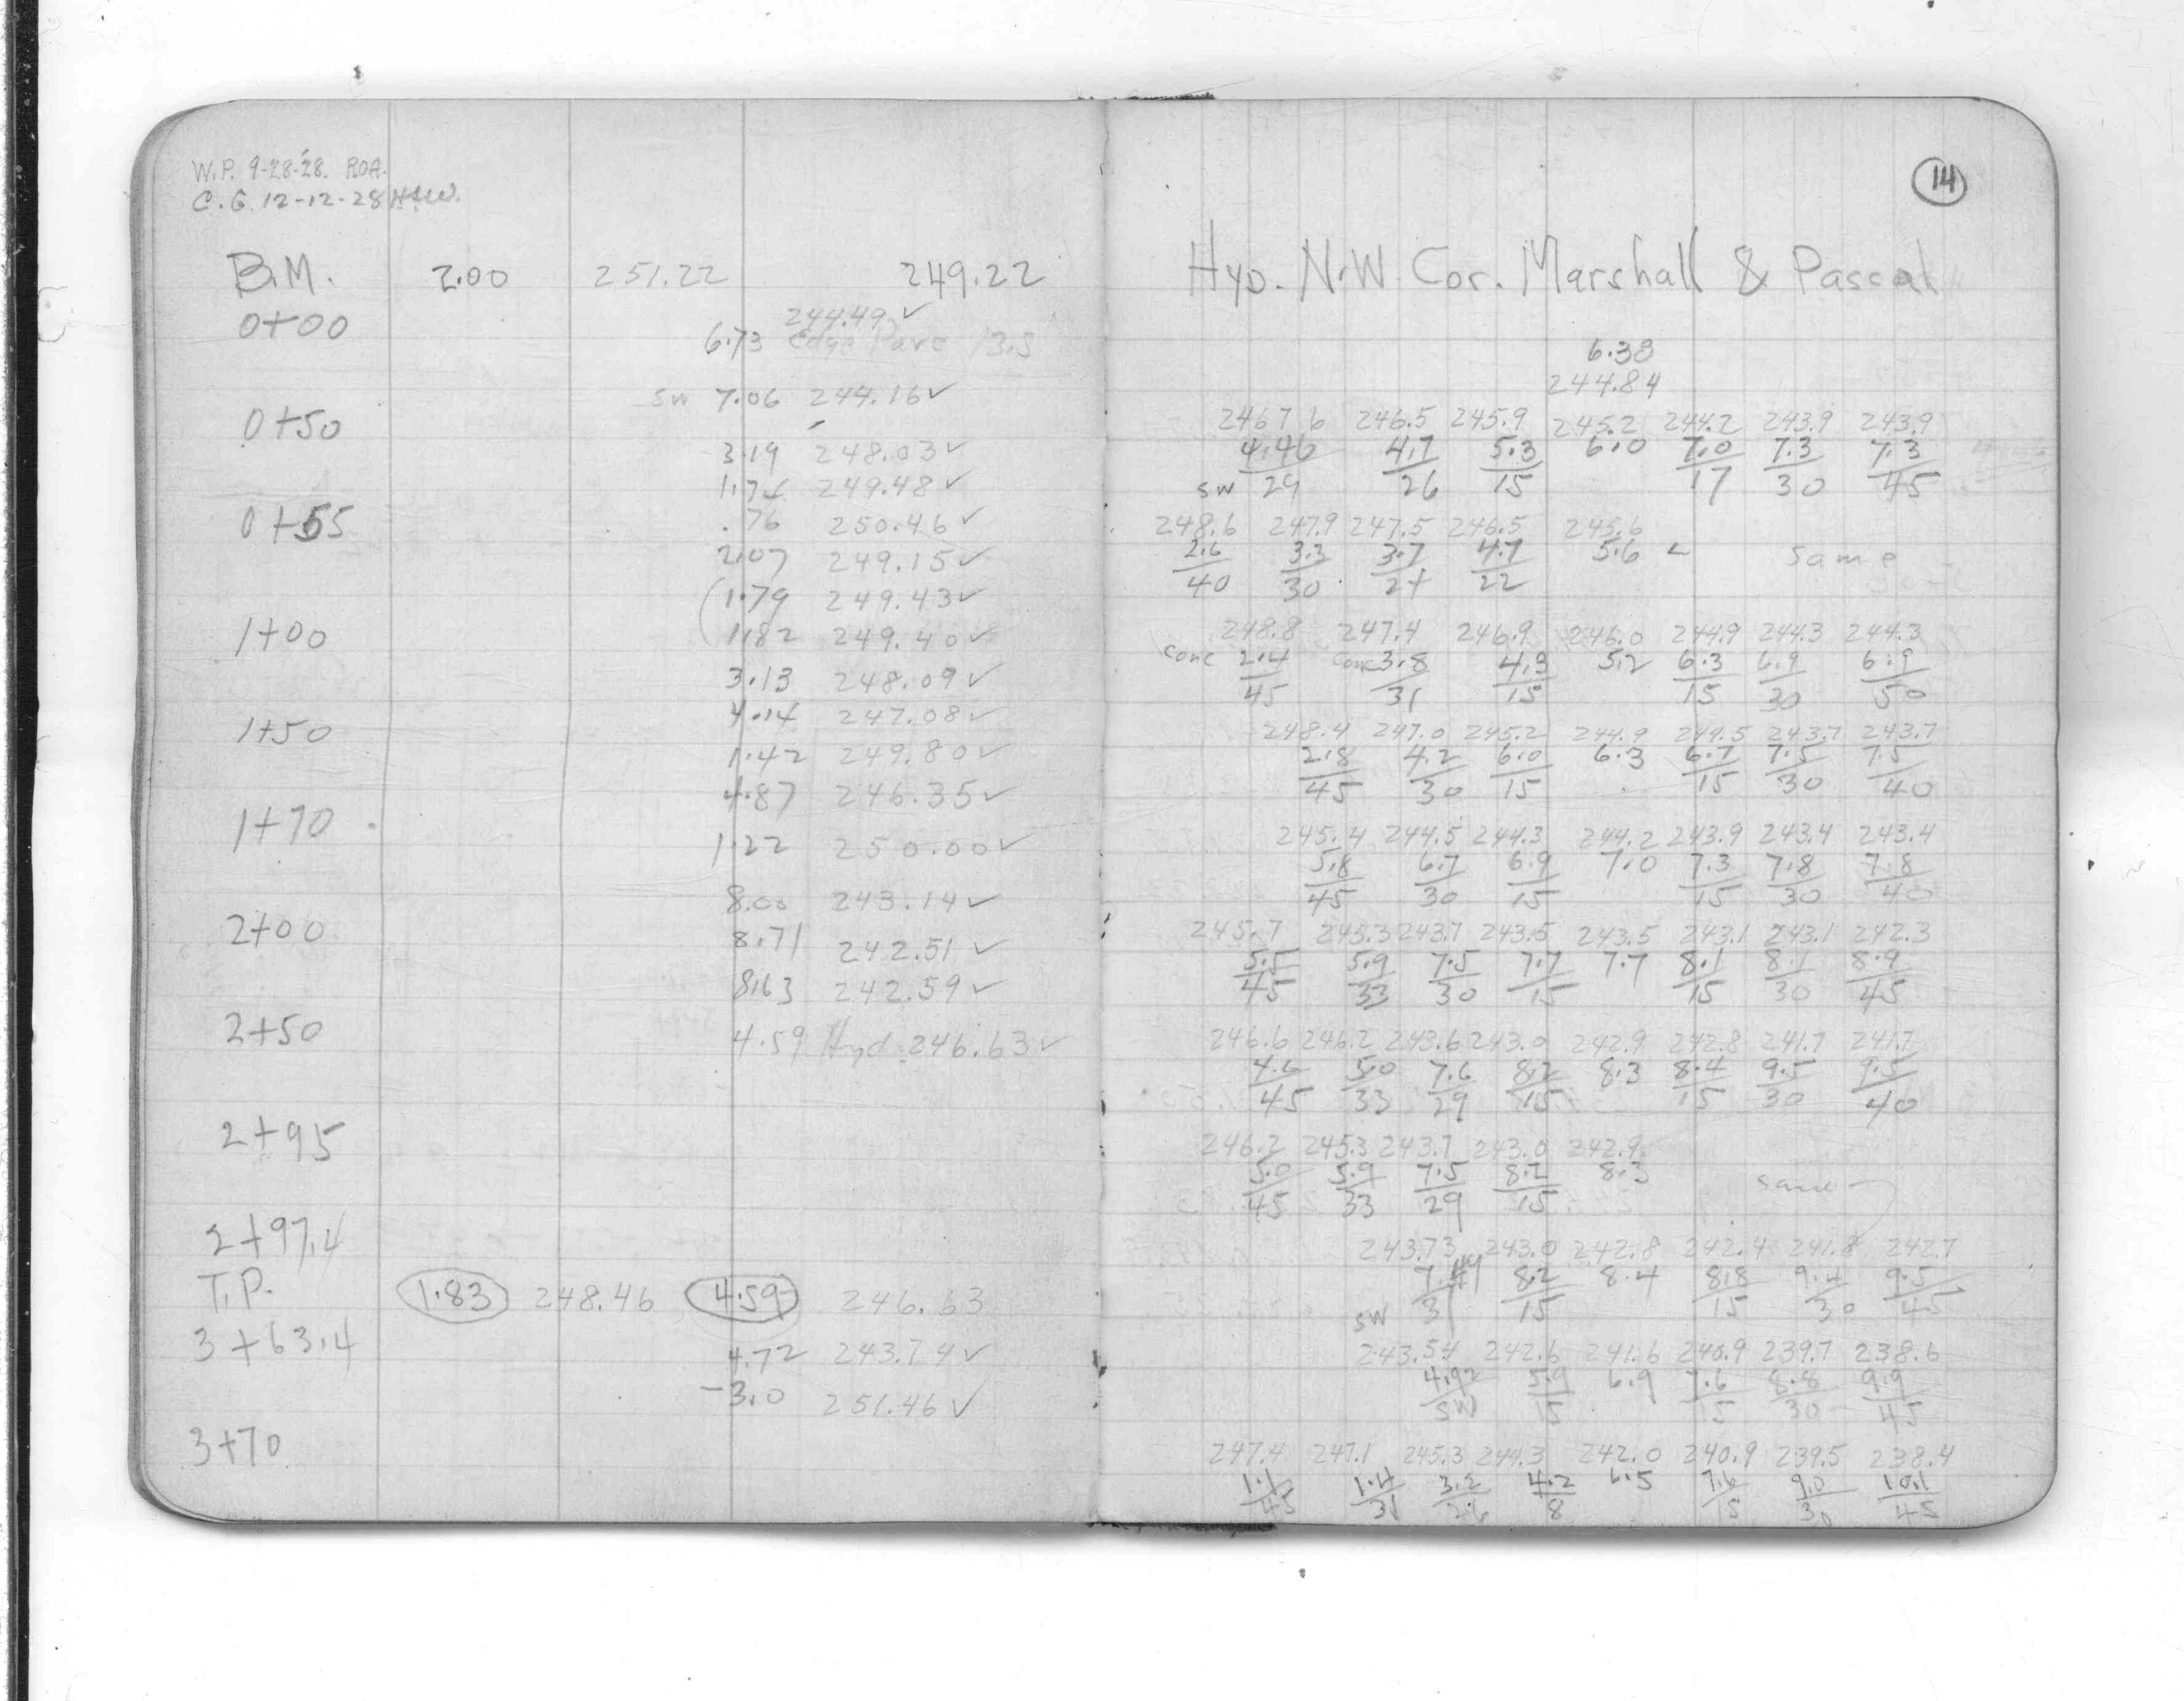 W.P. 9-28-28. ROA.
C.G. 12-12-28
B.M. 2.00 251.22 249.22
0+00 244.49 ✓
6.73 Edge Pave 13.5
sw 7.06 244.16 ✓
0+50
3.19 248.03 ✓
1.74 249.48 ✓
0+55 .76 250.46 ✓
2.07 249.15 ✓
(1.79 249.43 ✓
1+00 1.82 249.40 ✓
3.13 248.09 ✓
4.14 247.08 ✓
1+50 1.42 249.80 ✓
4.87 246.35 ✓
1+70 1.22 250.00 ✓
8.00 243.14 ✓
2+00 8.71 242.51 ✓
8.63 242.59 ✓
2+50 4.59 Hyd. 246.63 ✓
2+95
2+97.4
T.P. 1.83 248.46 4.59 246.63
3+63.4 4.72 243.74 ✓
-3.0 251.46 ✓
3+70
14
Hyd. N.W. Cor. Marshall & Pascal
6.38
244.84
246.76 246.5 245.9 245.2 244.2 243.9 243.9
4.46 4.7 5.3 6.0 7.0 7.3 7.3
sw 29 26 15 17 30 45
248.6 247.9 247.5 246.5 245.6
2.6 3.3 3.7 4.7 5.6 same
40 30 24 22
248.8 247.4 246.9 246.0 244.9 244.3 244.3
conc 2.4 conc 3.8 4.3 5.2 6.3 6.9 6.9
45 31 15 15 30 50
248.4 247.0 245.2 244.9 244.5 243.7 243.7
2.8 4.2 6.0 6.3 6.7 7.5 7.5
45 30 15 15 30 40
245.4 244.5 244.3 244.2 243.9 243.4 243.4
5.8 6.7 6.9 7.0 7.3 7.8 7.8
45 30 15 15 30 40
245.7 245.3 243.7 243.5 243.5 243.1 243.1 242.3
5.5 5.9 7.5 7.7 7.7 8.1 8.1 8.9
45 33 30 15 15 30 45
246.6 246.2 243.6 243.0 242.9 242.8 241.7 241.7
4.6 5.0 7.6 8.2 8.3 8.4 9.5 9.5
45 33 29 15 15 30 40
246.2 245.3 243.7 243.0 242.9
5.0 5.9 7.5 8.2 8.3 same
45 33 29 15
243.73 243.0 242.8 242.4 241.8 242.7
7.49 8.2 8.4 8.8 9.4 9.5
sw 31 15 15 30 45
243.54 242.6 241.6 240.9 239.7 238.6
4.92 5.9 6.9 7.6 8.8 9.9
sw 15 15 30 45
247.4 247.1 245.3 244.3 242.0 240.9 239.5 238.4
1.1 1.4 3.2 4.2 6.5 7.6 9.0 10.1
45 31 26 8 15 30 45